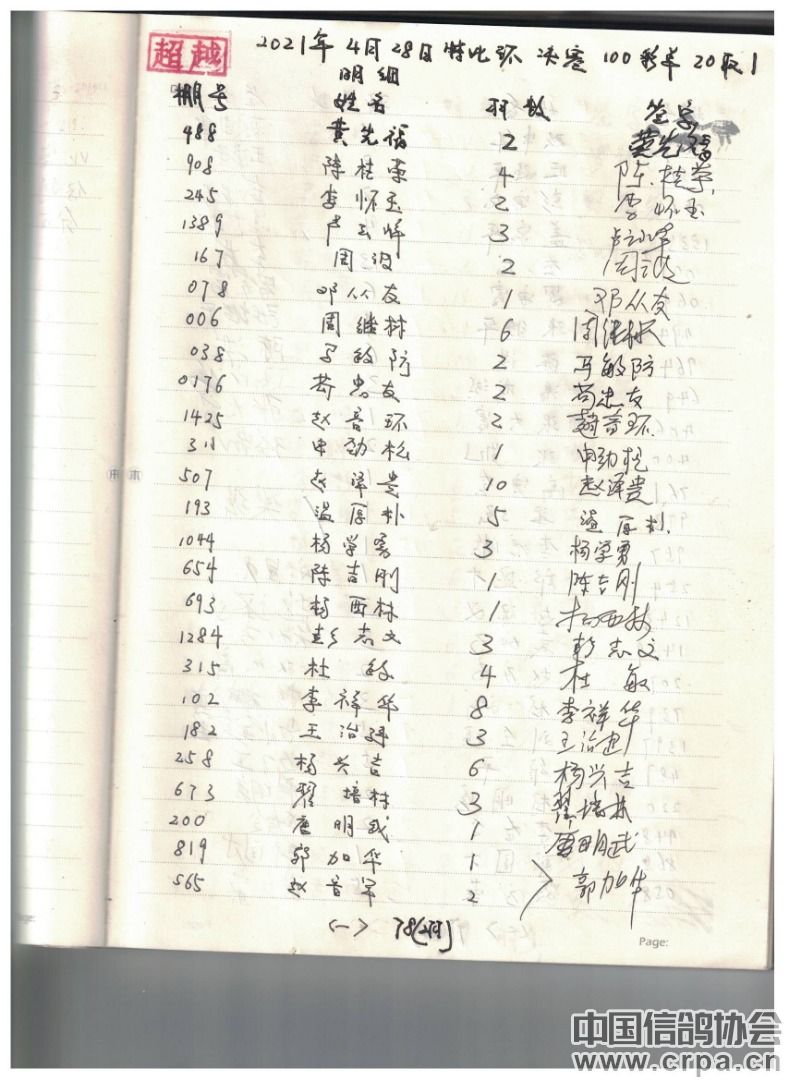 超越
2021年4月28日特比环 决赛 100彩单 20取1
明细
棚号 姓名 环数 签字
488 黄先福 2
908 陈桂荣 4 陈桂荣
245 李怀玉 2 李怀玉
1389 3
167 周波 2 周波
078 邓从友 1 邓从友
006 周继林 6 周继林
038 马敏防 2 马敏防
0176 苟忠友 2 苟忠友
1425 赵晋环 2 赵晋环
311 申劲松 1 申劲松
507 赵泽贵 10 赵泽贵
193 温厚朴 5 温厚朴
1044 杨学勇 3 杨学勇
654 陈吉刚 1 陈吉刚
693 杨西林 1 杨西林
1284 彭志文 3 彭志文
315 杜敏 4 杜敏
102 李祥华 8 李祥华
182 王治建 3 王治建
258 杨兴吉 6 杨兴吉
673 翟培林 3 翟培林
200 唐明武 1 唐明武
819 郭加华 1 郭加华
565 2
<一> 78(羽)
Page:
中国信鸽协会
www.crpa.cn